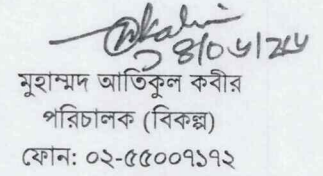 মুহাম্মদ আতিকুল কবীর
পরিচালক (বিকল্প)
ফোন: ০২-৫৫০০৭১৭২